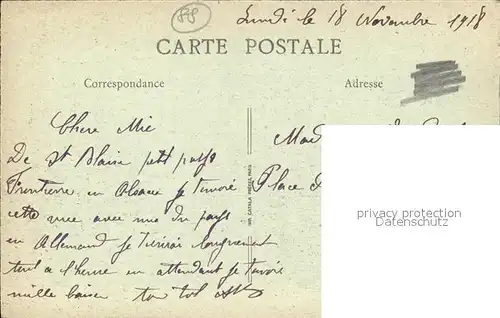 Lundi le 18 Novembre 1918
CARTE POSTALE
Correspondance
Adresse
Chere Mie
De St Blaise petit pays
Frontiere en Alsace je t'envoie
cette vue avec une du pays
en Allemand je t'ecrirai longuement
tout a l'heure en attendant je t'envoie
mille baiser ton tol
Place
IMP. CATALA FRÈRES, PARIS
privacy protection
Datenschutz